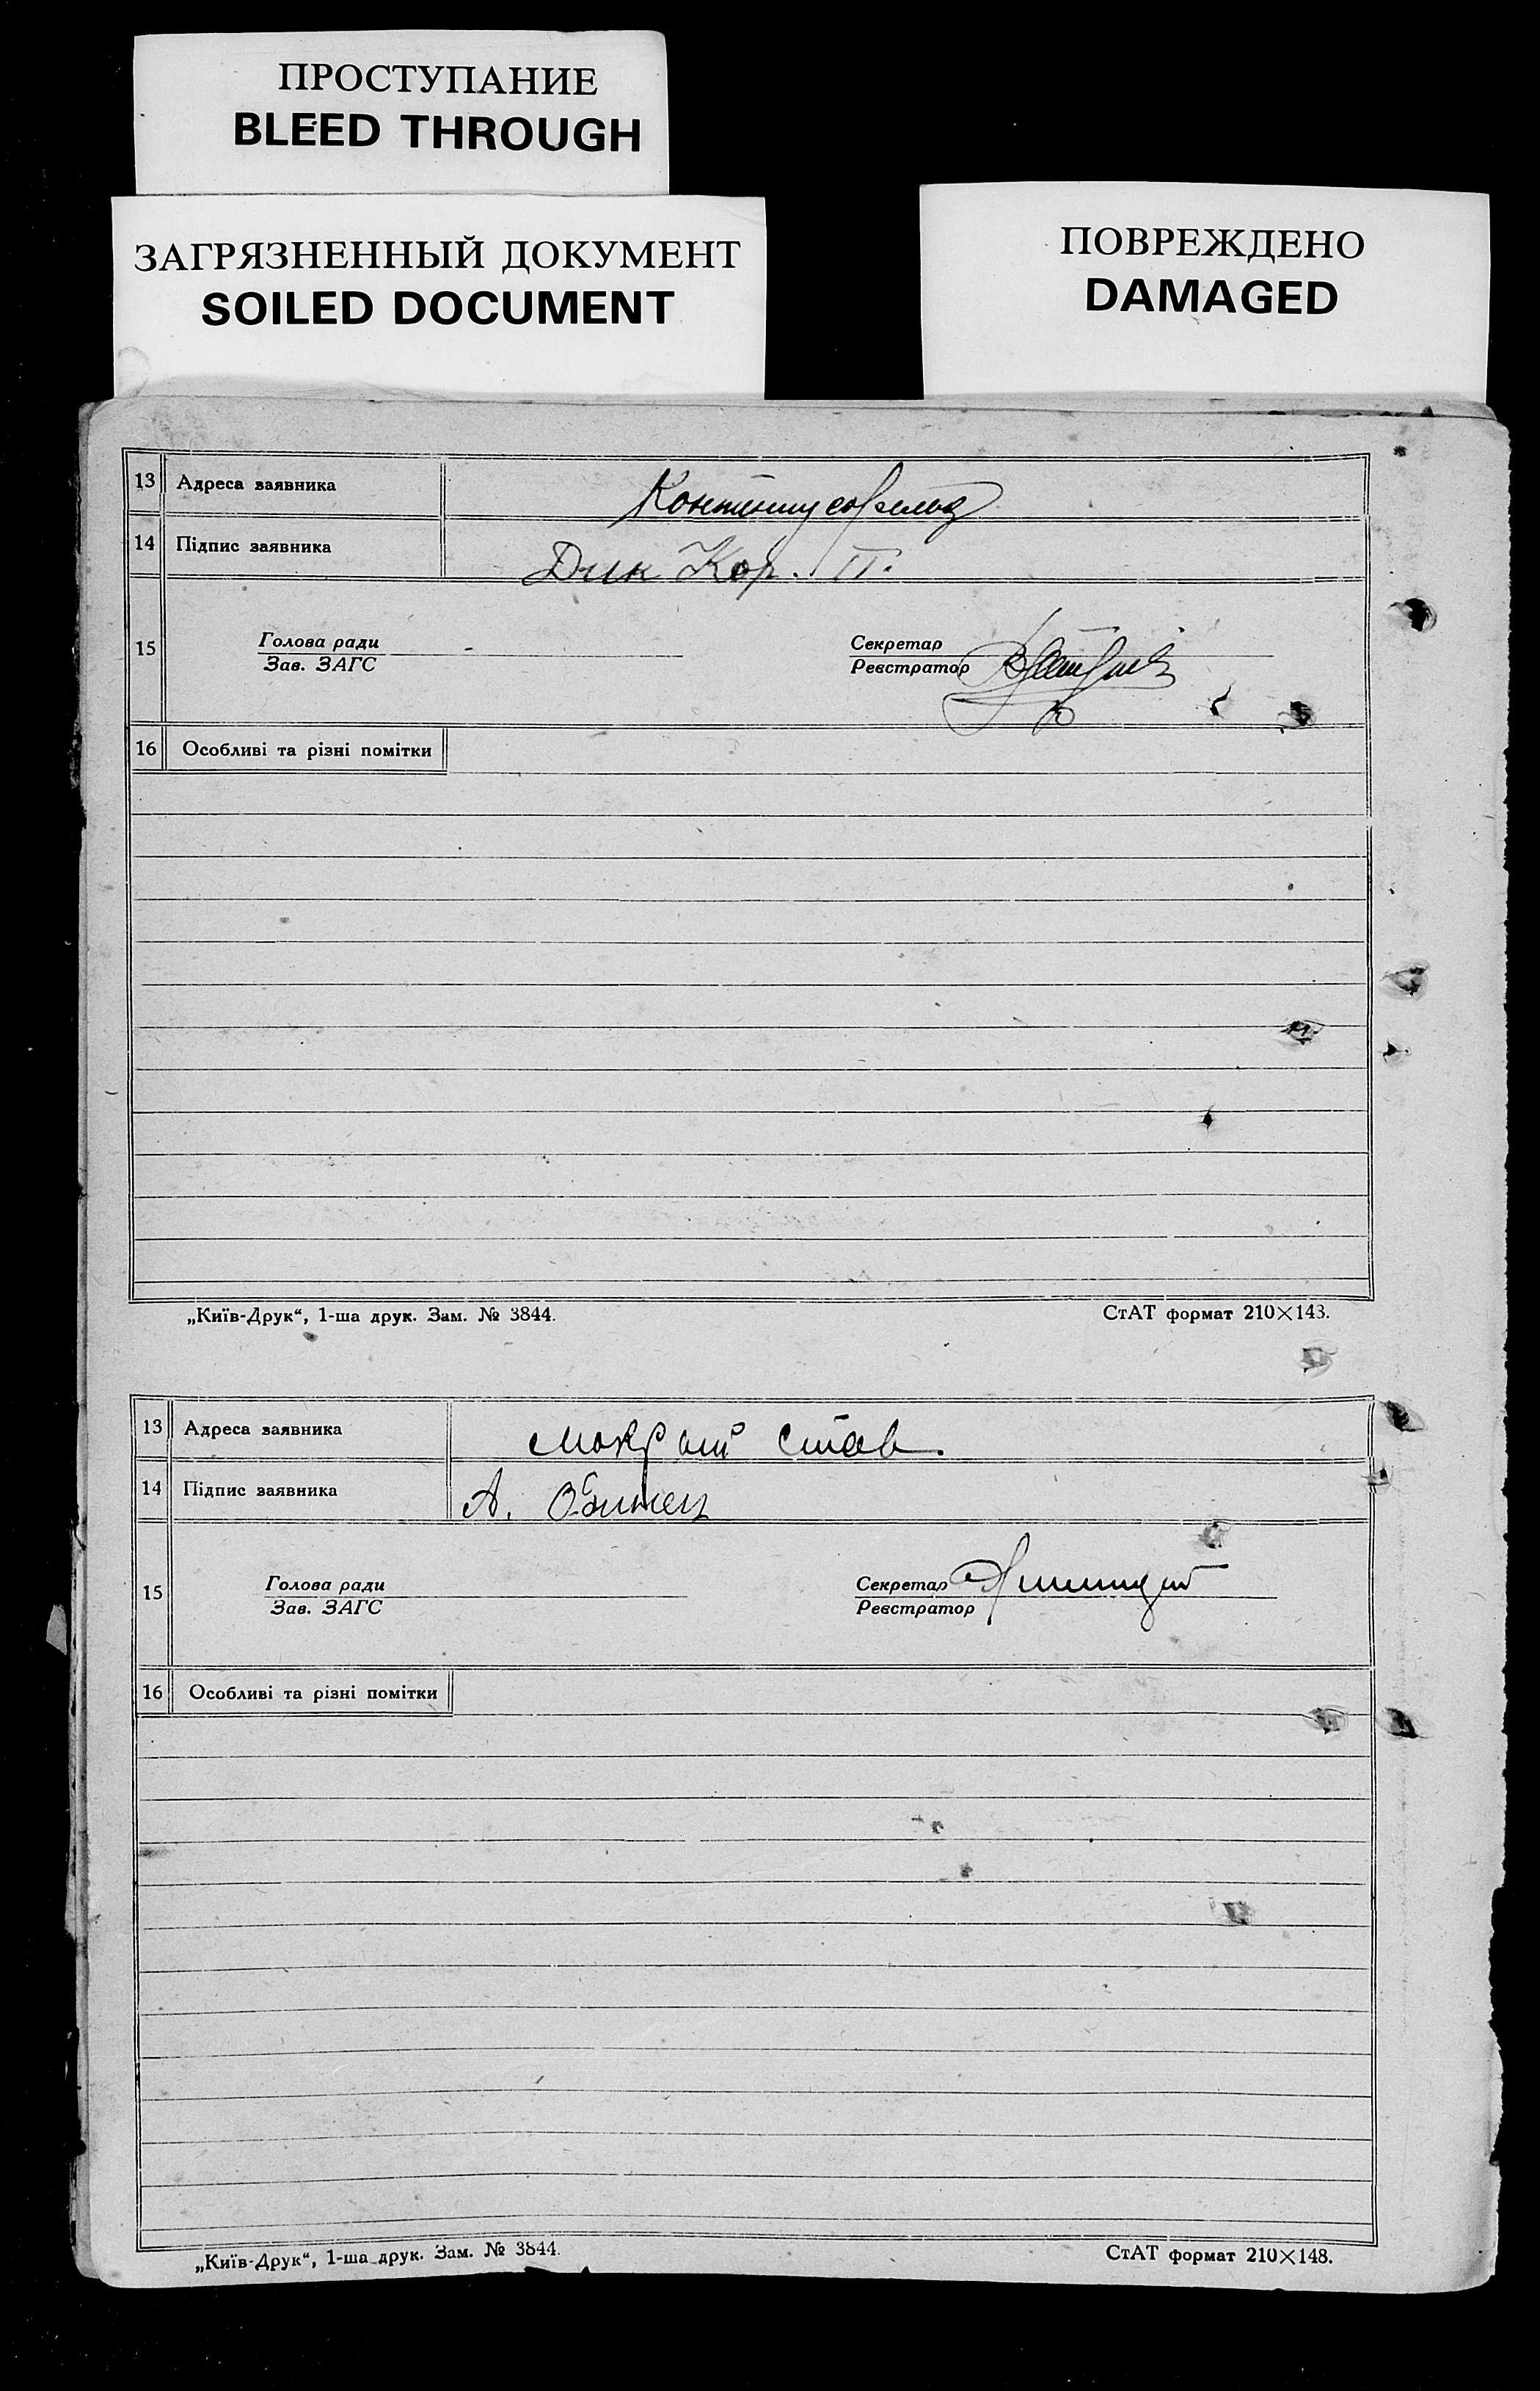 ПРОСТУПАНИЕ
BLEED THROUGH
ЗАГРЯЗНЕННЫЙ ДОКУМЕНТ
SOILED DOCUMENT
ПОВРЕЖДЕНО
DAMAGED
13 Адреса заявника
14 Підпис заявника Дик Кор. П.
15 Голова ради Секретар
Зав. ЗАГС Реєстратор
16 Особливі та різні помітки
„Київ-Друк“, 1-ша друк. Зам. № 3844. СтАТ формат 210×143.
13 Адреса заявника Мокрий став.
14 Підпис заявника А.
15 Голова ради Секретар
Зав. ЗАГС Реєстратор
16 Особливі та різні помітки
„Київ-Друк“, 1-ша друк. Зам. № 3844. СтАТ формат 210×148.